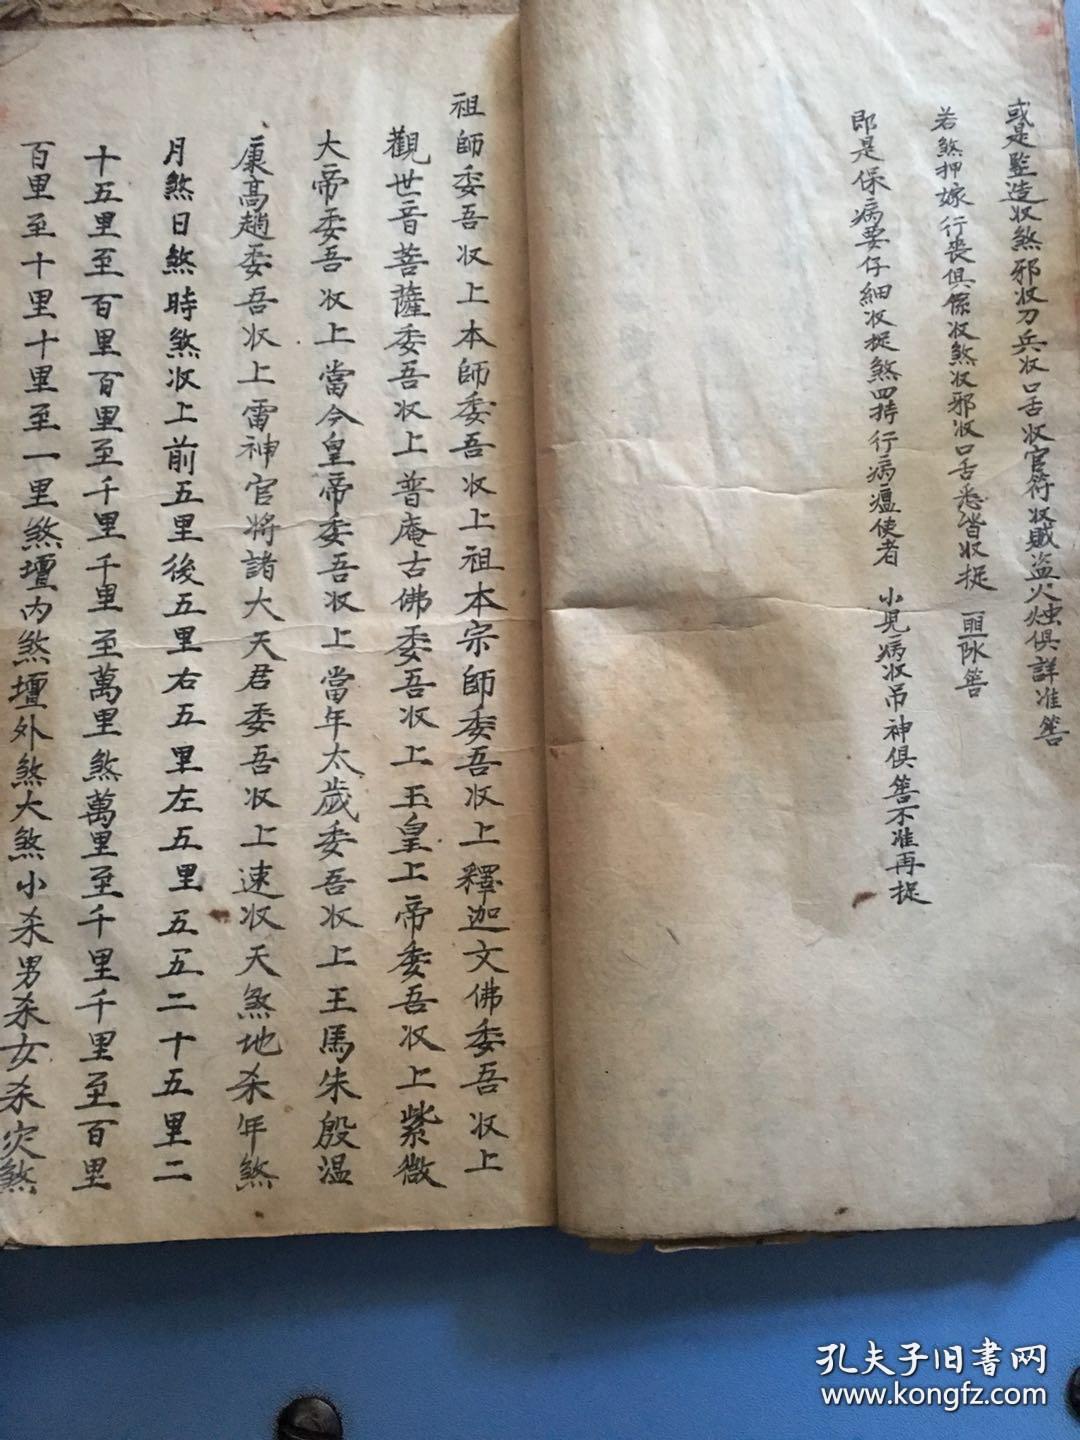 或是監造収煞邪収刀兵収口舌収官符収賊盗火燭俱詳准筶
若煞押嫁行喪俱係収煞収邪収口舌悉皆収捉 筶
即是保病要仔細収捉煞四持行病瘟使者 小児病収吊神俱筶不准再捉
祖師委吾収上本師委吾収上祖本宗師委吾収上釋迦文佛委吾収上
觀世音菩薩委吾収上普庵古佛委吾収上玉皇上帝委吾収上紫微
大帝委吾収上當今皇帝委吾収上當年太歲委吾収上王馬朱殷温
康高趙委吾収上雷神官将諸大天君委吾収上速収天煞地杀年煞
月煞日煞時煞収上前五里後五里右五里左五里五五二十五里二
十五里至百里百里至千里千里至萬里煞萬里至千里千里至百里
百里至十里十里至一里煞壇内煞壇外煞大煞小杀男杀女杀灾煞
孔夫子旧書网
www.kongfz.com